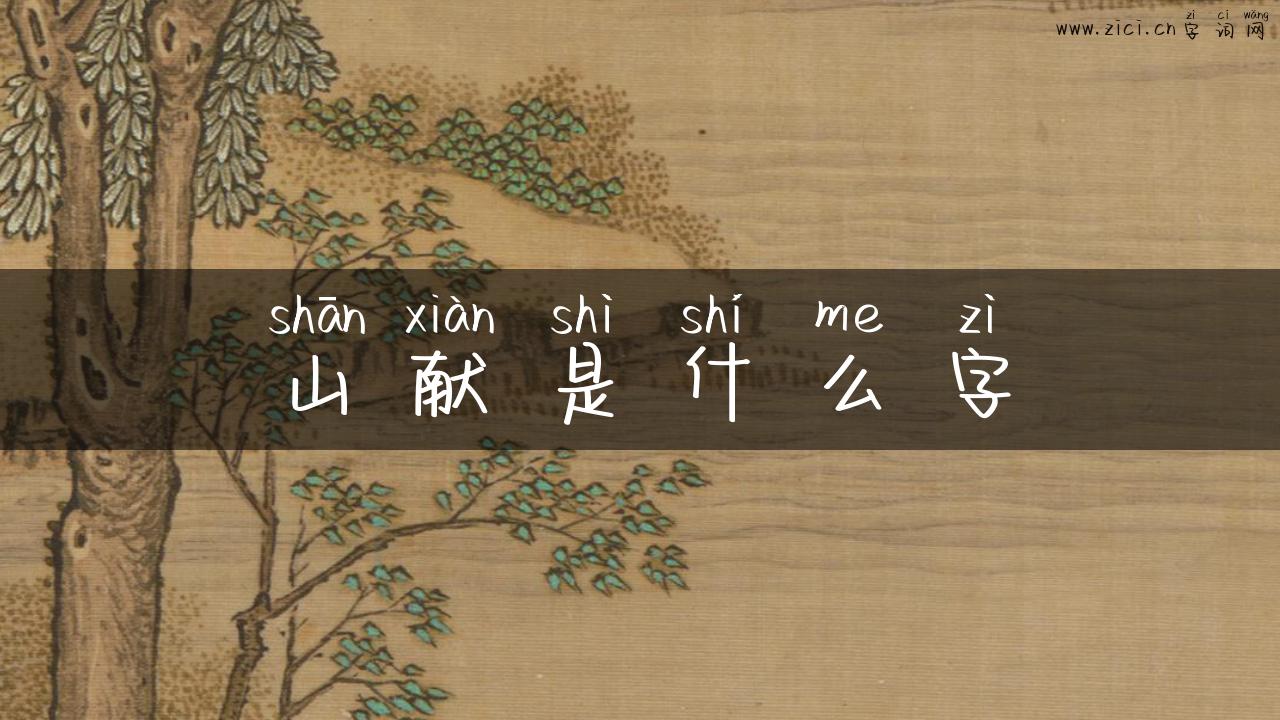 zì cí wǎng
www.zici.cn 字词网
shān xiàn shì shí me zì
山献是什么字